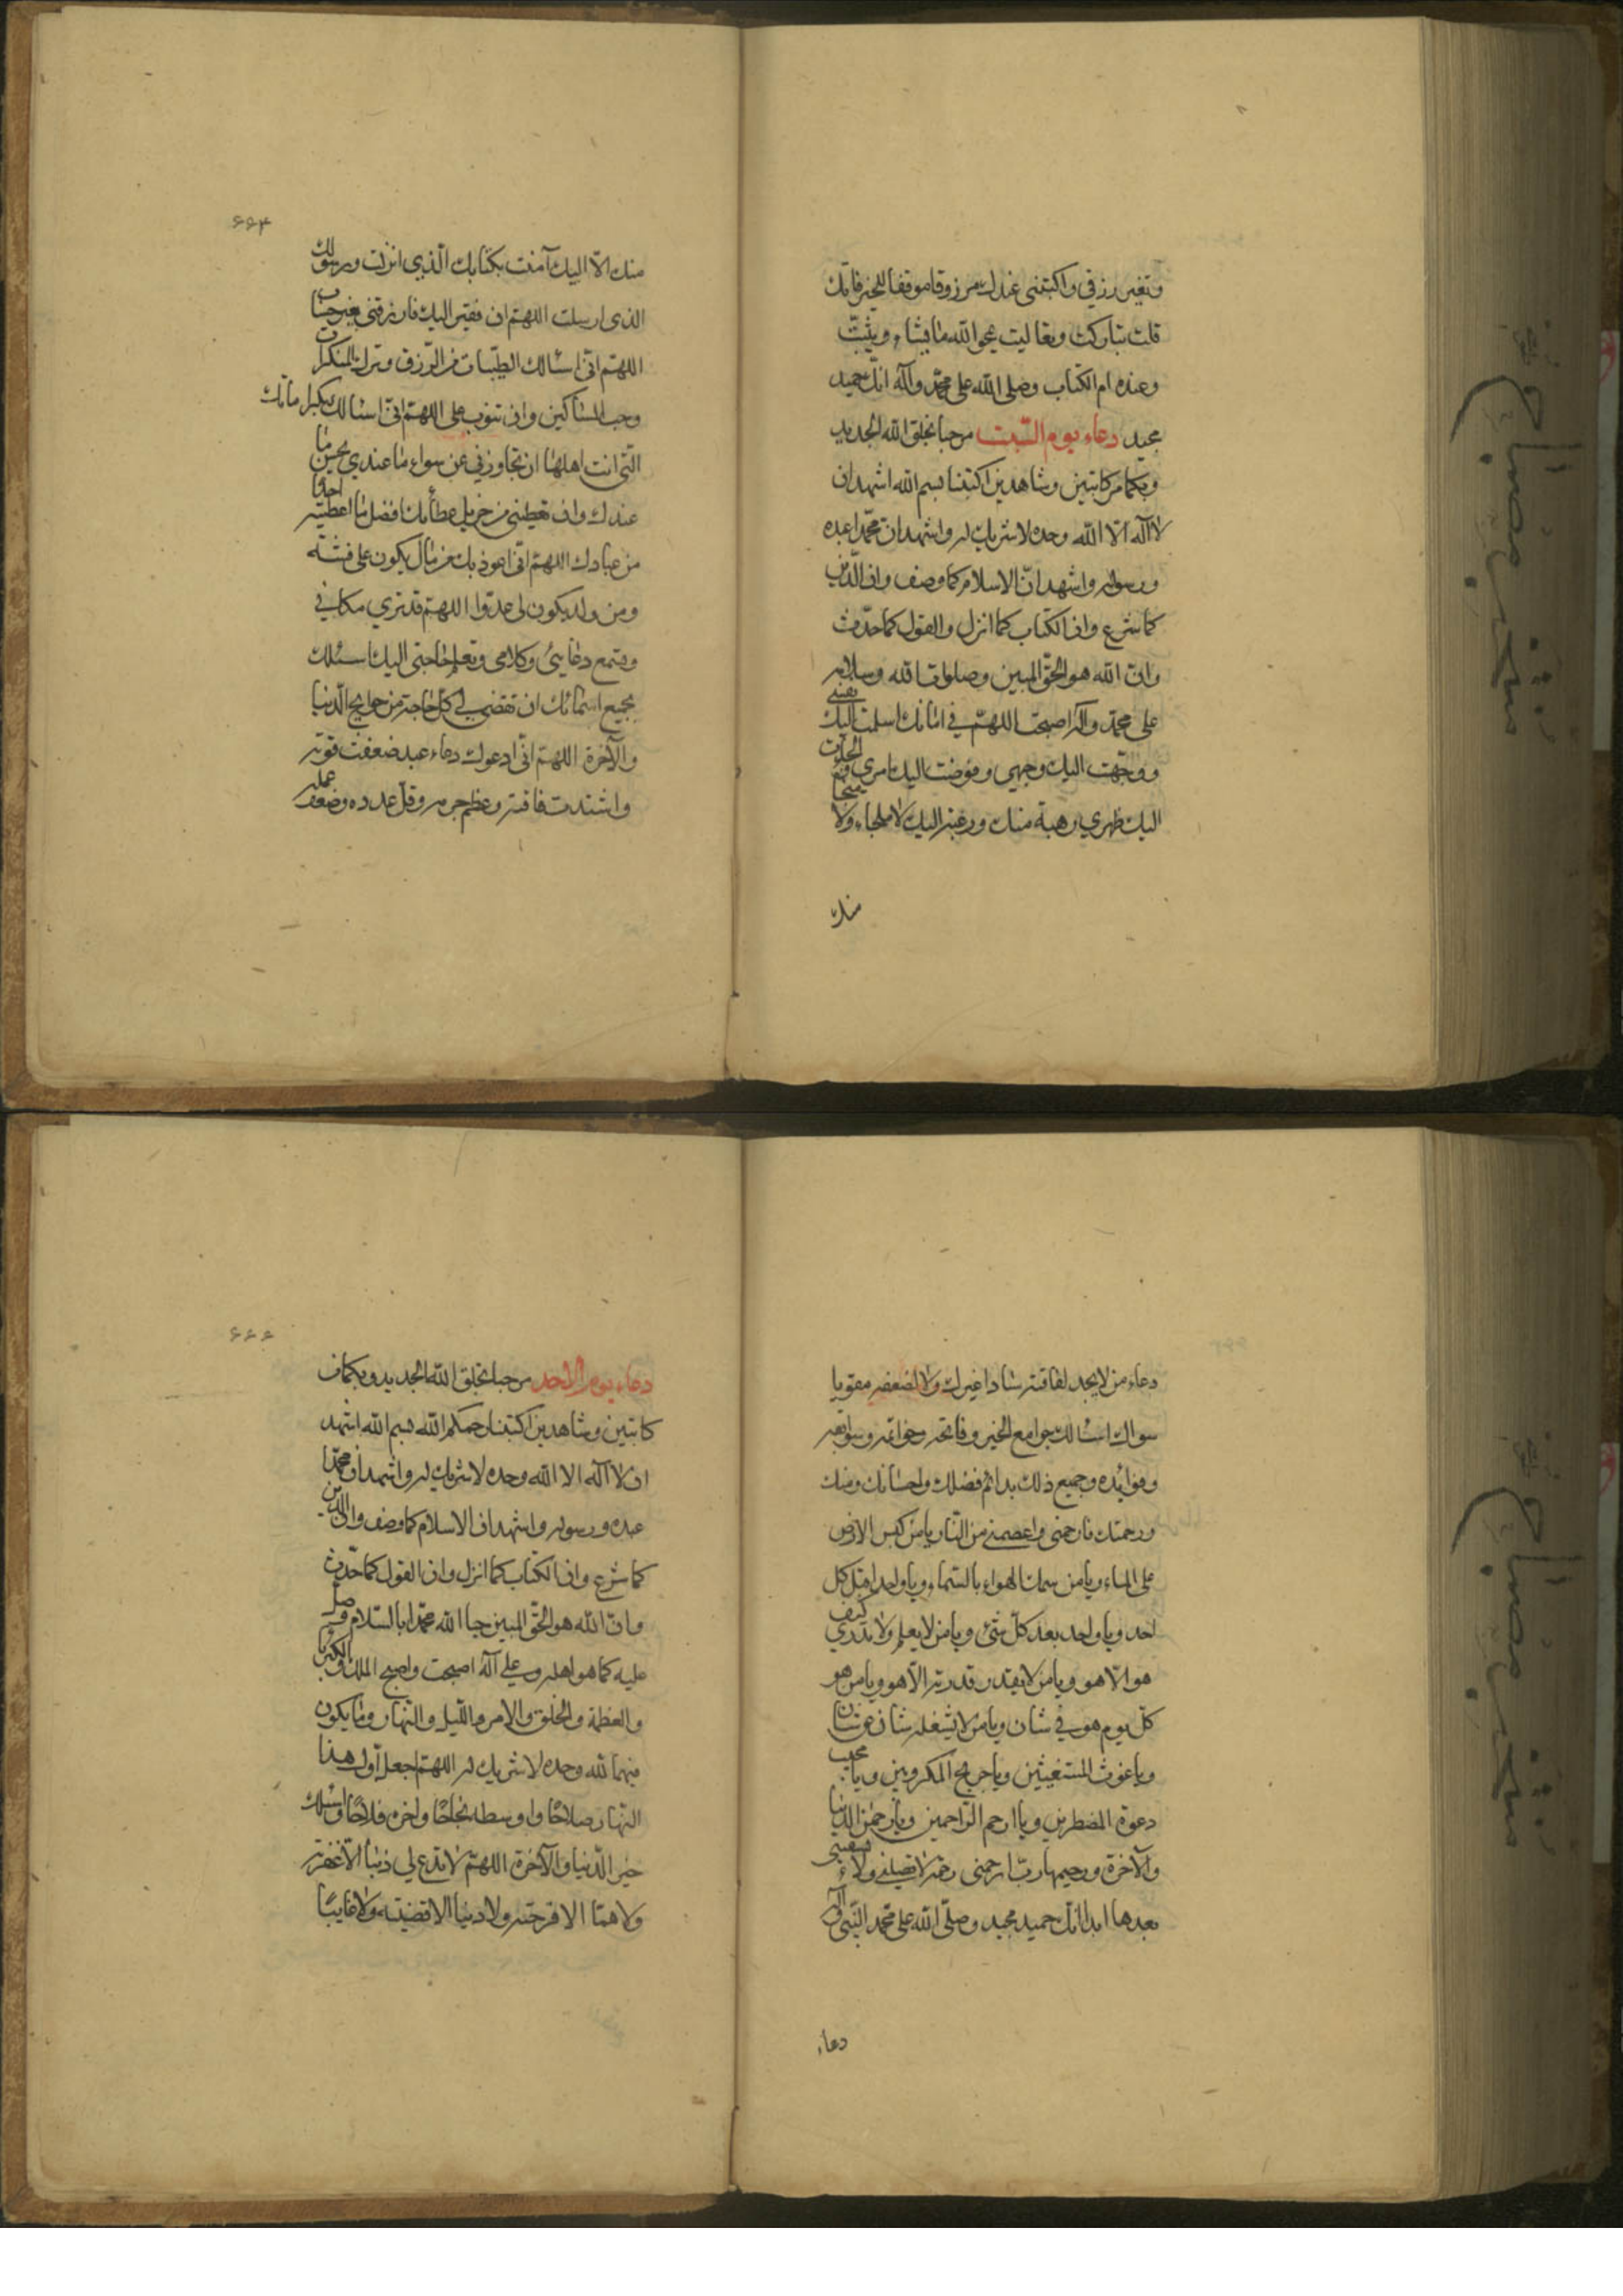 وتغير رزقي واكتبني عندك مرزوقا موفقا للخير فانك
قلت تباركت وتعاليت يمحو الله ما يشاء ويثبت
وعنده ام الكتاب وصلى الله على محمد وآله انك حميد
مجيد دعاء يوم السبت مرحبا بخلق الله الجديد
وبكما من كاتبين وشاهدين اكتبنا بسم الله اشهد ان
لا اله الا الله وحده لا شريك له واشهد ان محمدا عبده
ورسوله واشهد ان الاسلام كما وصف وان الدين
كما شرع وان الكتاب كما انزل والقول كما حدّث
وان الله هو الحق المبين وصلوات الله وسلامه
على محمد وآله اصبحت اللهم في امانك اسلمت اليك نفسي
ووجهت اليك وجهي وفوضت اليك امري والجأت
اليك ظهري رهبة منك ورغبة اليك لا ملجاء ولا منجا
منك
۶۶۴
منك الا اليك آمنت بكتابك الذي انزلت ورسولك
الذي ارسلت اللهم ان فقير اليك فارزقني بغير حساب
اللهم اني اسئالك الطيبات من الرزق وترك المنكرات
وحب المساكين وان تتوب علي اللهم اني اسئالك بكرامتك
التي انت اهلها ان تجاوزني عن سواء ما عندي بحسن ما
عندك وان تعطيني من جزيل عطائك افضل ما اعطيته احدا
من عبادك اللهم اني اعوذ بك من مال يكون علي فتنة
ومن ولد يكون لي عدوا اللهم قد ترى مكاني
وتسمع دعائي وكلامي وتعلم حاجتي اليك اسئلك
بجميع اسمائك ان تقضي لي كل حاجة من حوايج الدنيا
والآخرة اللهم اني ادعوك دعاء عبد ضعفت قوته
واشتدت فاقته وعظم جرمه وقل عدده وضعف عمله
دعاء من لا يجد لفاقته سادا غيرك ولا لضعفه مقويا
سواك اسئالك جوامع الخير وفاتحه وخواتمه وسوابقه
وفوائده وجميع ذلك بدائم فضلك واحسانك ومنك
ورحمتك فارحمني واعصمني من النار يا من كبس الارض
على الماء ويا من سمك الهواء بالسماء ويا واحدا قبل كل
احد ويا واحد بعد كل شئ ويا من لا يعلم ولا يدري كيف
هو الا هو ويا من لا يقدر قدرته الا هو ويا من هو
كل يوم هو في شان ويا من لا يشغله شان عن شان
ويا غوث المستغيثين ويا صريخ المكروبين ويا مجيب
دعوة المضطرين ويا ارحم الراحمين ويا رحمن الدنيا
والآخرة ورحيمهما رب ارحمني رحمة لا تضلني ولا تشقيني
بعدها ابدا انك حميد مجيد وصلى الله على محمد النبي وآله
دعاء
۶۶۶
دعاء يوم الاحد مرحبا بخلق الله الجديد وبكما من
كاتبين وشاهدين اكتبنا رحمكم الله بسم الله اشهد
ان لا اله الا الله وحده لا شريك له واشهد ان محمدا
عبده ورسوله واشهد ان الاسلام كما وصف وان الدين
كما شرع وان الكتاب كما انزل وان القول كما حدّث
وان الله هو الحق المبين حيا الله محمدا بالسلام وصلى
عليه كما هو اهله وعلى آله اصبحت واصبح الملك والكبريا
والعظمة والخلق والامر والليل والنهار وما يكون
فيهما لله وحده لا شريك له اللهم اجعل اول هذا
النهار صلاحا واوسطه نجاحا واخره فلاحا واسئلك
خير الدنيا والآخرة اللهم لا تدع لي ذنبا الا غفرته
ولا هما الا فرجته ولا دينا الا قضيته ولا غايبا